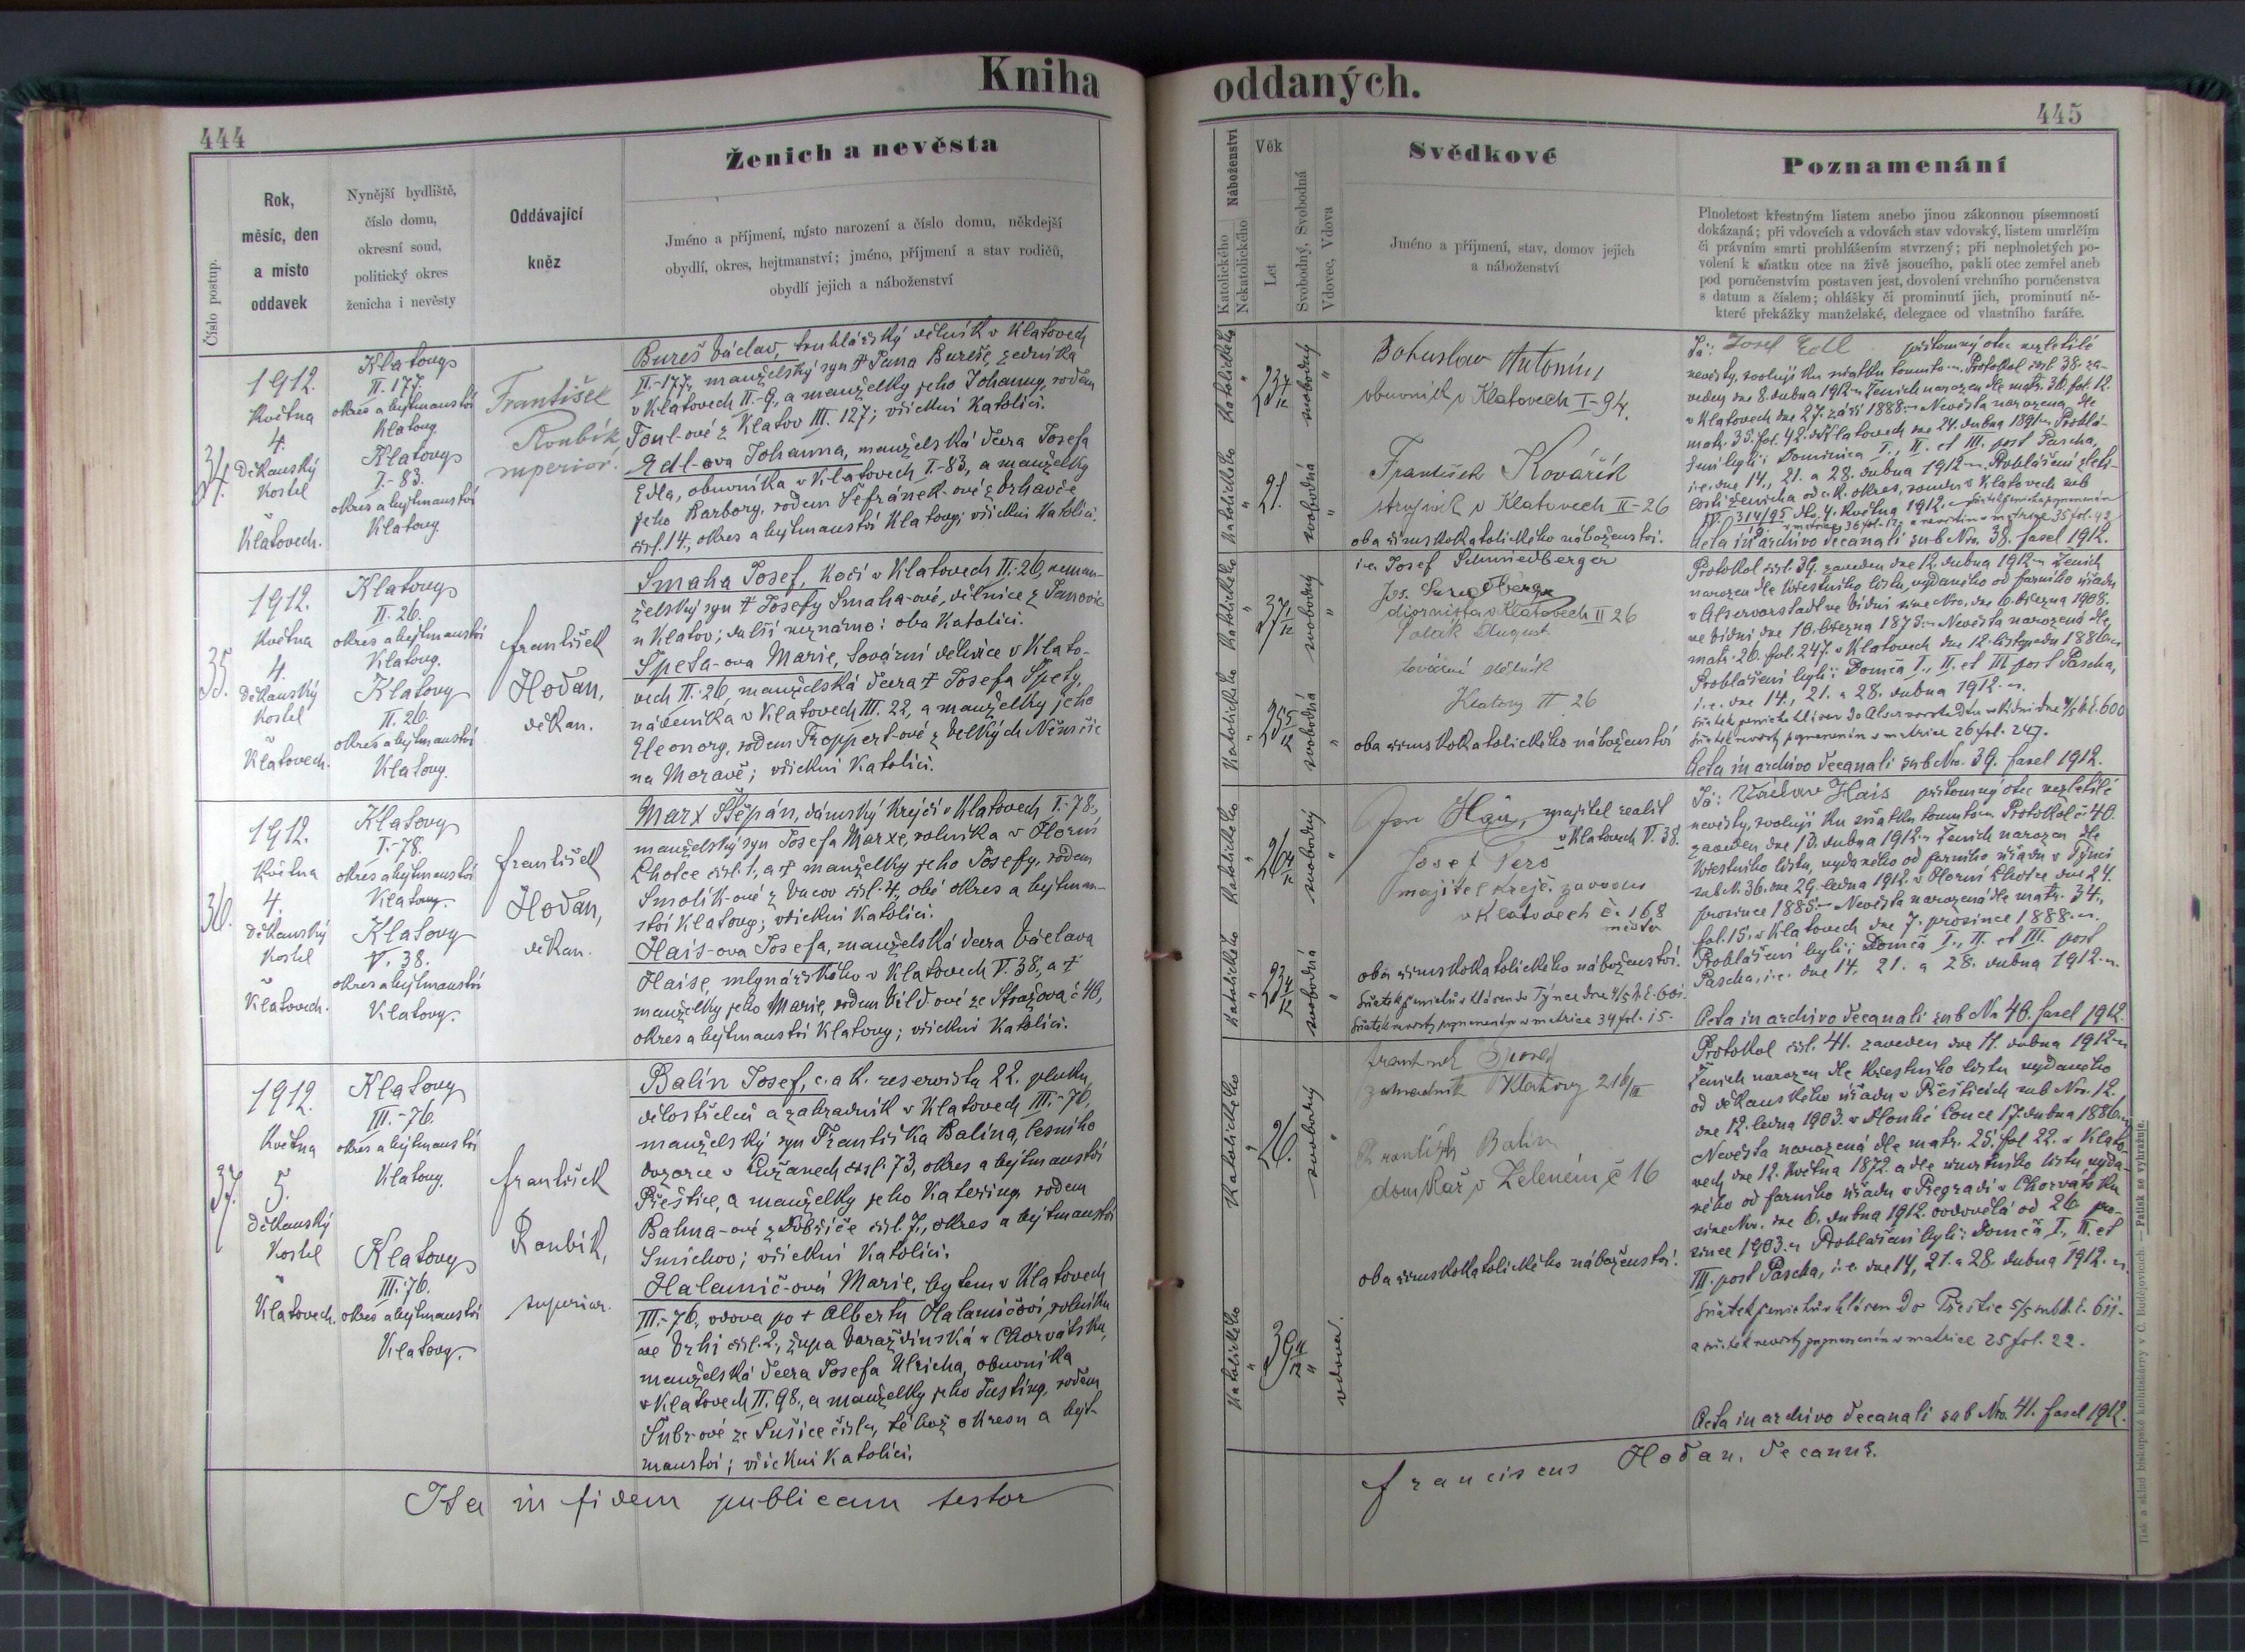 Kniha oddaných.
444
445
Číslo postup.
Rok,
měsíc, den
a místo
oddavek
Nynější bydliště,
číslo domu,
okresní soud,
politický okres
ženicha i nevěsty
Oddávající
kněz
Ženich a nevěsta
Jméno a příjmení, místo narození a číslo domu, někdejší
obydlí, okres, hejtmanství; jméno, příjmení a stav rodičů,
obydlí jejich a náboženství
Náboženství
Katolického
Nekatolického
Věk
Let
Svobodný, Svobodná
Vdovec, Vdova
Svědkové
Jméno a příjmení, stav, domov jejich
a náboženství
Poznamenání
Plnoletost křestným listem anebo jinou zákonnou písemností
dokázaná; při vdovcích a vdovách stav vdovský, listem umrlčím
či právním smrti prohlášením stvrzený; při neplnoletých po-
volení k sňatku otce na živě jsoucího, pakli otec zemřel aneb
pod poručenstvím postaven jest, dovolení vrchního poručenstva
s datum a číslem; ohlášky či prominutí jich, prominutí ně-
které překážky manželské, delegace od vlastního faráře.
34.
1912.
Května
4.
Děkanský
Kostel
v
Klatovech.
Klatovy
II. 177.
okres a hejtmanství
Klatovy.
Klatovy
I.-83.
okres a hejtmanství
Klatovy
František
Roubík,
superior.
Bureš Václav, truhlářský dělník v Klatovech
II.-177, manželský syn † Jana Bureše, zedníka
v Klatovech II.-9., a manželky jeho Johanny, rodem
Foul-ové z Klatov III. 127; všickni Katolíci.
Edl-ova Johanna, manželská dcera Josefa
Edla, obuvníka v Klatovech I.-83, a manželky
jeho Barbory, rodem Šefránek-ové z Drhavče
čísl. 14., okres a hejtmanství Klatovy; všickni Katolíci.
Katolického
23 7/12
svobodný
Katolického
21.
svobodná
Bohuslav Antonín,
obuvník v Klatovech I-94.
František Kovářík
strojník v Klatovech II-26
oba římskokatolického náboženství.
Já: Josef Edl přítomný otec nezletilé
nevěsty, svoluji ku sňatku tomuto. Protokol čísl. 38. za-
veden dne 8. dubna 1912. Ženich narozen dle matr. 36. fol. 12.
v Klatovech dne 27. září 1888. Nevěsta narozena dle
matr. 35. fol. 42. v Klatovech dne 24. dubna 1891. Prohlá-
šení byli: Dominica I., II. et III. post Pascha,
i.e. dne 14., 21. a 28. dubna 1912. Prohlášení zleti-
losti ženicha od c. k. okres. soudu v Klatovech sub
IV. 314/95 dto. 4. Května 1912.
Acta in archivo decanali sub Nro. 38. fasc 1912.
35.
1912.
Května
4.
Děkanský
Kostel
v
Klatovech.
Klatovy
II. 26.
okres a hejtmanství
Klatovy.
Klatovy
II. 26.
okres a hejtmanství
Klatovy.
František
Hoďan,
děkan.
Smaha Josef, kočí v Klatovech II.-26, neman-
želský syn † Josefy Smaha-ové, dělnice z Janovic
u Klatov; další neznámo: oba Katolíci.
Špeta-ova Marie, tovární dělnice v Klato-
vech II.-26, manželská dcera † Josefa Špety,
nádeníka v Klatovech III. 22, a manželky jeho
Eleonory, rodem Proppert-ové z Velkých Němčic
na Moravě; všickni Katolíci.
Katolického
37 1/12
svobodný
Katolického
25 5/12
svobodná
i.e. Josef Schmiedberger
diornista v Klatovech II 26
Polák August
tovární dělník
Klatovy II 26
oba římskokatolického náboženství
Protokol čísl. 39. zaveden dne 12. dubna 1912. Ženich
narozen dle křestního listu, vydaného od farního úřadu
v Alservorstadt ve Vídni sine Nro. dne 6. března 1908.
ve Vídni dne 10. března 1875. Nevěsta narozená dle
matr. 26. fol. 247. v Klatovech dne 12. listopadu 1886.
Prohlášení byli: Domca I., II. et III post Pascha,
i.e. dne 14., 21. a 28. dubna 1912.
Sňatek nevěsty poznamenán v matrice 26 fol. 247.
Acta in archivo decanali sub Nro. 39. fasc 1912.
36.
1912.
Května
4.
Děkanský
Kostel
v
Klatovech.
Klatovy
I.-78.
okres a hejtmanství
Klatovy.
Klatovy
V. 38.
okres a hejtmanství
Klatovy.
František
Hoďan,
děkan.
Marx Štěpán, dámský krejčí v Klatovech I.-78.,
manželský syn Josefa Marxe, rolníka v Horní
Lhotce čísl. 1, a † manželky jeho Josefy, rodem
Smolík-ové z Vacov čísl. 4, obé okres a hejtman-
ství Klatovy; všickni Katolíci.
Hais-ova Josefa, manželská dcera Václava
Haise, mlynářského v Klatovech V. 38., a †
manželky jeho Marie, rodem Vild-ové ze Strážova č 40,
okres a hejtmanství Klatovy; všickni Katolíci.
Katolického
26 4/12
svobodný
Katolického
23 4/12
svobodná
Jan Hais, majitel realit
v Klatovech V. 38.
Josef
majitel krejč. závodu
v Klatovech č. 168
město
oba římskokatolického náboženství.
Sňatek nevěsty poznamenán v matrice 34 fol. 15.
Já: Václav Hais přítomný otec nezletilé
nevěsty, svoluji ku sňatku tomuto. Protokol č 40.
zaveden dne 13. dubna 1912. Ženich narozen dle
křestního listu, vydaného od farního úřadu v Týnci
sub N. 36. dne 29. ledna 1912. v Horní Lhotce dne 24.
prosince 1885. Nevěsta narozená dle matr. 34.,
fol. 15. v Klatovech dne 7. prosince 1888.
Prohlášení byli: Domca I., II. et III. post
Pascha, i.e. dne 14. 21. a 28. dubna 1912.
Acta in archivo decanali sub No 40. fasc 1912.
37.
1912.
Května
5.
Děkanský
Kostel
v
Klatovech.
Klatovy
III.-76.
okres a hejtmanství
Klatovy.
Klatovy
III.-76.
okres a hejtmanství
Klatovy.
František
Roubík,
superior.
Balín Josef, c. a k. reservista 22. pluku
dělostřelců a zahradník v Klatovech III.-76,
manželský syn Františka Balína, lesního
dozorce v Lužanech čísl. 73, okres a hejtmanství
Přeštice, a manželky jeho Kateřiny, rodem
Bahna-ové z Dobříče čísl. 7., okres a hejtmanství
Smíchov; všickni Katolíci.
Halamič-ová Marie, bytem v Klatovech
III.-76, vdova po † Albertu Halamičovi, rolníku
ve Vrhi čísl. 2., župa Varaždinská v Chorvatsku,
manželská dcera Josefa Ulricha, obuvníka
v Klatovech II. 98., a manželky jeho Justiny, rodem
Šubr-ové ze Sušice čísla, téhož okresu a hejt-
manství; všickni Katolíci.
Katolického
26.
svobodný
Katolického
39 11/12
vdova.
zahradník Klatovy 216/III
František Balín
domkář v Zeleném č 16
oba římskokatolického náboženství.
Protokol čísl. 41. zaveden dne 11. dubna 1912.
Ženich narozen dle křestního listu vydaného
od děkanského úřadu v Přešticích sub Nro. 12.
dne 12. ledna 1903. v Dlouhé Louce 17. dubna 1886.
Nevěsta narozená dle matr. 25. fol 22. v Klato-
vech dne 12. května 1872. a dle úmrtního listu vyda-
ného od farního úřadu v Pregradi v Chorvatsku
sine Nro. dne 6. dubna 1912. ovdověla od 26. pro-
since 1903. Prohlášení byli: Domca I., II. et
III. post Pascha, i.e. dne 14, 21. a 28. dubna 1912.
Sňatek ženichův hlášen do Přeštic 5/5 sub č. 611.
a sňatek nevěsty poznamenán v matrice 25 fol. 22.
Acta in archivo decanali sub Nro. 41. fasc 1912.
Ita in fidem publicam testor
Franciscus Hoďan, Decanus.
Tisk a sklad biskupské knihtiskárny v Č. Budějovicích. — Patisk se vyhražuje.